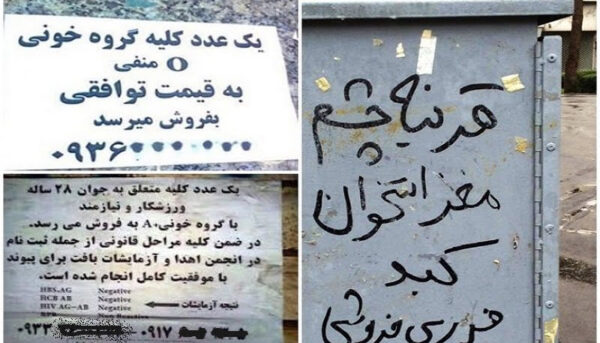 یک عدد کلیه گروه خونی
O منفی
به قیمت توافقی
بفروش میرسد
۰۹۳۶
یک عدد کلیه متعلق به جوان ۲۸ ساله
ورزشکار و نیازمند
با گروه خونی A، به فروش می رسد.
در ضمن کلیه مراحل قانونی از جمله ثبت نام
در انجمن اهدا و آزمایشات بافت برای پیوند
با موفقیت کامل انجام شده است.
HBS.AG Negative
HCB AB Negative
HIV.AG-AB Negative نتیجه آزمایشات
Non Reactive
۰۹۳۳ ۰۹۱۷
قرنیه چشم
مغز استخوان
کبد
فوری فروشی